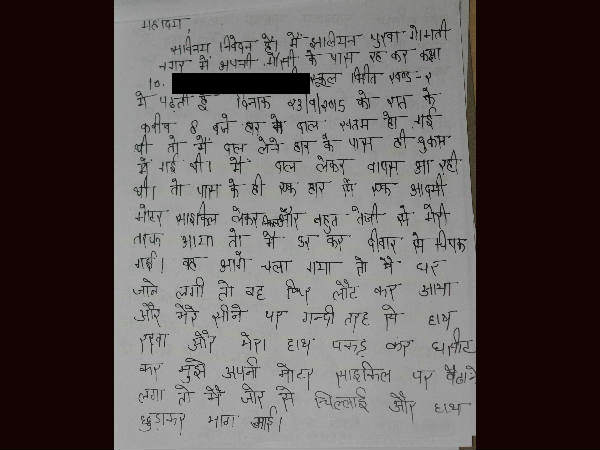 महोदय,
सविनय निवेदन है। मैं झालियन पुरवा गोमती
नगर में अपनी मौसी के पास रह कर कक्षा
10. स्कूल विनीत खण्ड-२
में पढ़ती हूँ दिनांक २3/9/२०15 को रात के
करीब 8 बजे घर में दाल खतम हो गई
थी तो मैं दाल लेने घर के पास ही दुकान
में गई थी। मैं दाल लेकर वापस आ रही
थी। तो पास के ही एक घर से एक आदमी
मोटर साइकिल लेकर और बहुत तेजी से मेरी
तरफ आया तो मैं डर कर दीवार से चिपक
गई। वह आगे चला गया तो मैं घर
जाने लगी तो वह फिर लौट कर आया
और मेरे सीने पर गन्दी तरह से हाथ
रखा और मेरा हाथ पकड़ कर घसीट
कर मुझे अपनी मोटर साइकिल पर बैठाने
लगा तो मैं जोर से चिल्लाई और हाथ
छुड़ाकर भाग आई।